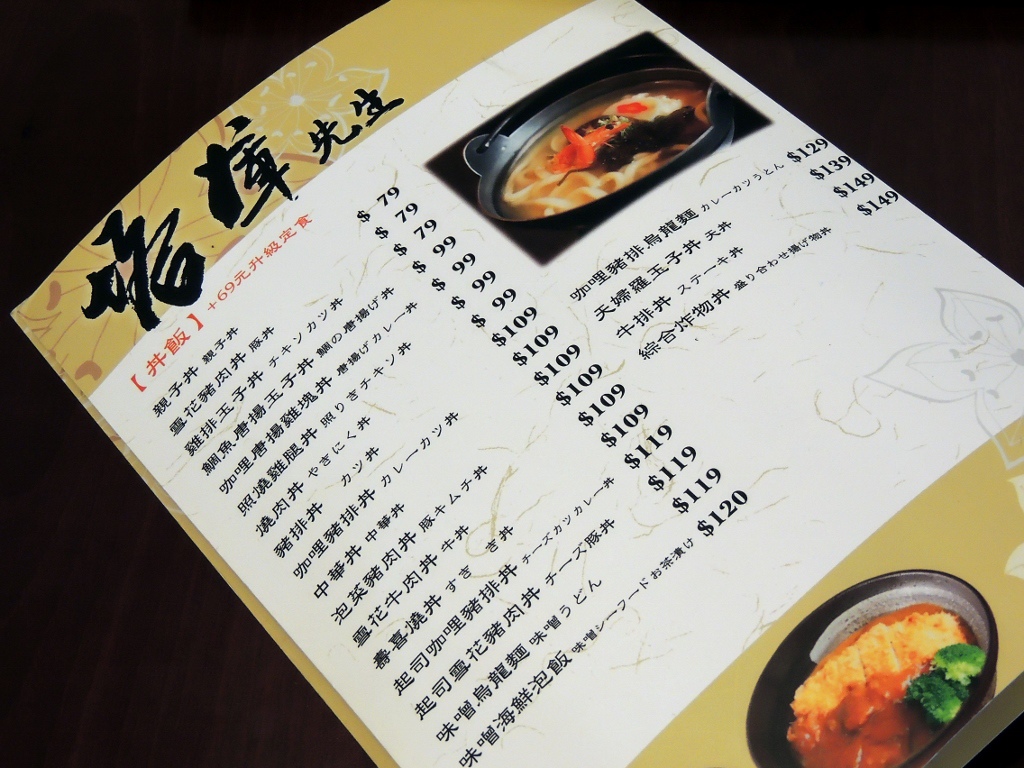 先生
【丼飯】+69元升級定食
親子丼 親子丼 $ 79
雪花豬肉丼 豚丼 $ 79
雞排玉子丼 チキンカツ丼 $ 79
鯛魚唐揚玉子丼 鯛の唐揚げ丼 $ 99
咖哩唐揚雞塊丼 唐揚げカレー丼 $ 99
照燒雞腿丼 照りぎチキン丼 $ 99
燒肉丼 やぎにく丼 $ 99
豬排丼 カツ丼 $109
咖哩豬排丼 カレーカツ丼 $109
中華丼 中華丼 $109
泡菜豬肉丼 豚キムチ丼 $109
雪花牛肉丼 牛丼 $109
壽喜燒丼 すぎ ぎ丼 $109
起司咖哩豬排丼 チーズカツカレー丼 $119
起司雪花豬肉丼 チーズ豚丼 $119
味噌烏龍麵 味噌うどん $119
味噌海鮮泡飯 味噌シーフードお茶漬け $120
咖哩豬排烏龍麵 カレーカツうどん $129
天婦羅玉子丼 天丼 $139
牛排丼 ステーキ丼 $149
綜合炸物丼 盛り合わせ揚げ物丼 $149